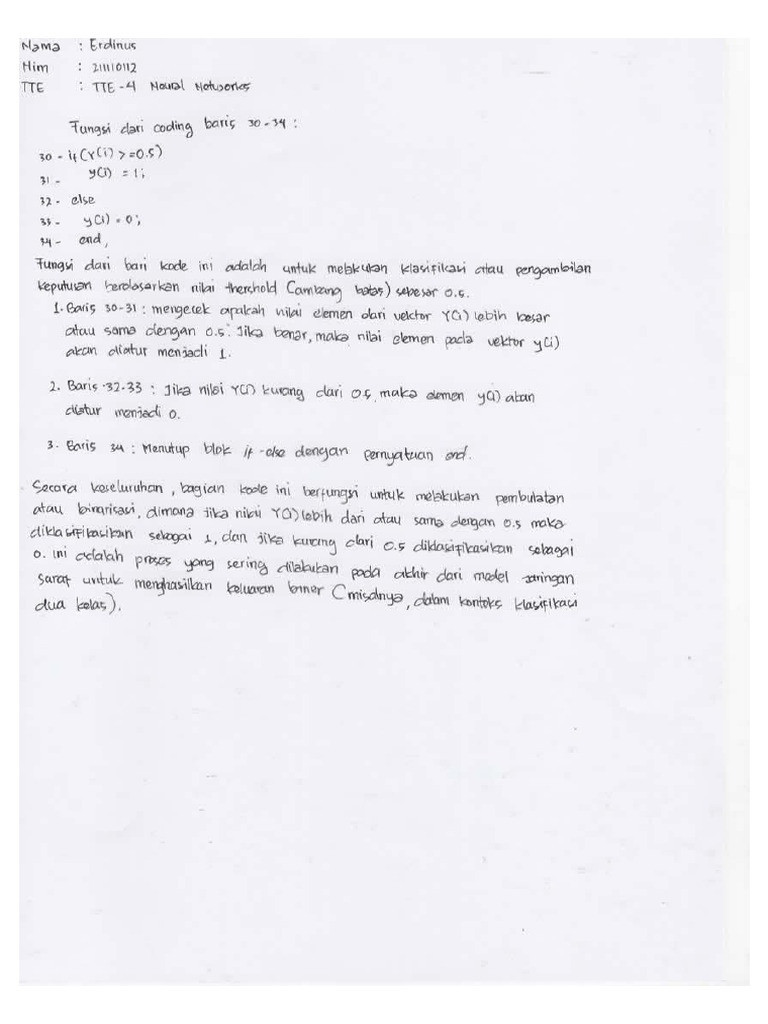 Nama : Erdinus
Nim : 211110112
TTE : TTE-4 Neural Networks
Fungsi dari coding baris 30-34 :
30 - if (Y(i) >=0.5)
31 - y(i) = 1;
32 - else
33 - y(i) = 0;
34 - end,
Fungsi dari bari kode ini adalah untuk melakukan klasifikasi atau pengambilan
keputusan berdasarkan nilai therchold (ambang batas) sebesar 0.5.
1. Baris 30-31 : mengecek apakah nilai elemen dari vektor Y(i) lebih besar
atau sama dengan 0.5. Jika benar, maka nilai elemen pada vektor y(i)
akan diatur menjadi 1.
2. Baris 32-33 : Jika nilai Y(i) kurang dari 0.5, maka elemen y(i) akan
diatur menjadi 0.
3. Baris 34 : Menutup blok if-else dengan pernyatuan end.
Secara keseluruhan, bagian kode ini berfungsi untuk melakukan pembulatan
atau binarisasi, dimana jika nilai Y(i) lebih dari atau sama dengan 0.5 maka
diklasifikasikan sebagai 1, dan jika kurang dari 0.5 diklasifikasikan sebagai
0. ini adalah proses yang sering dilakukan pada akhir dari model jaringan
saraf untuk menghasilkan keluaran biner (misalnya, dalam konteks klasifikasi
dua kelas).